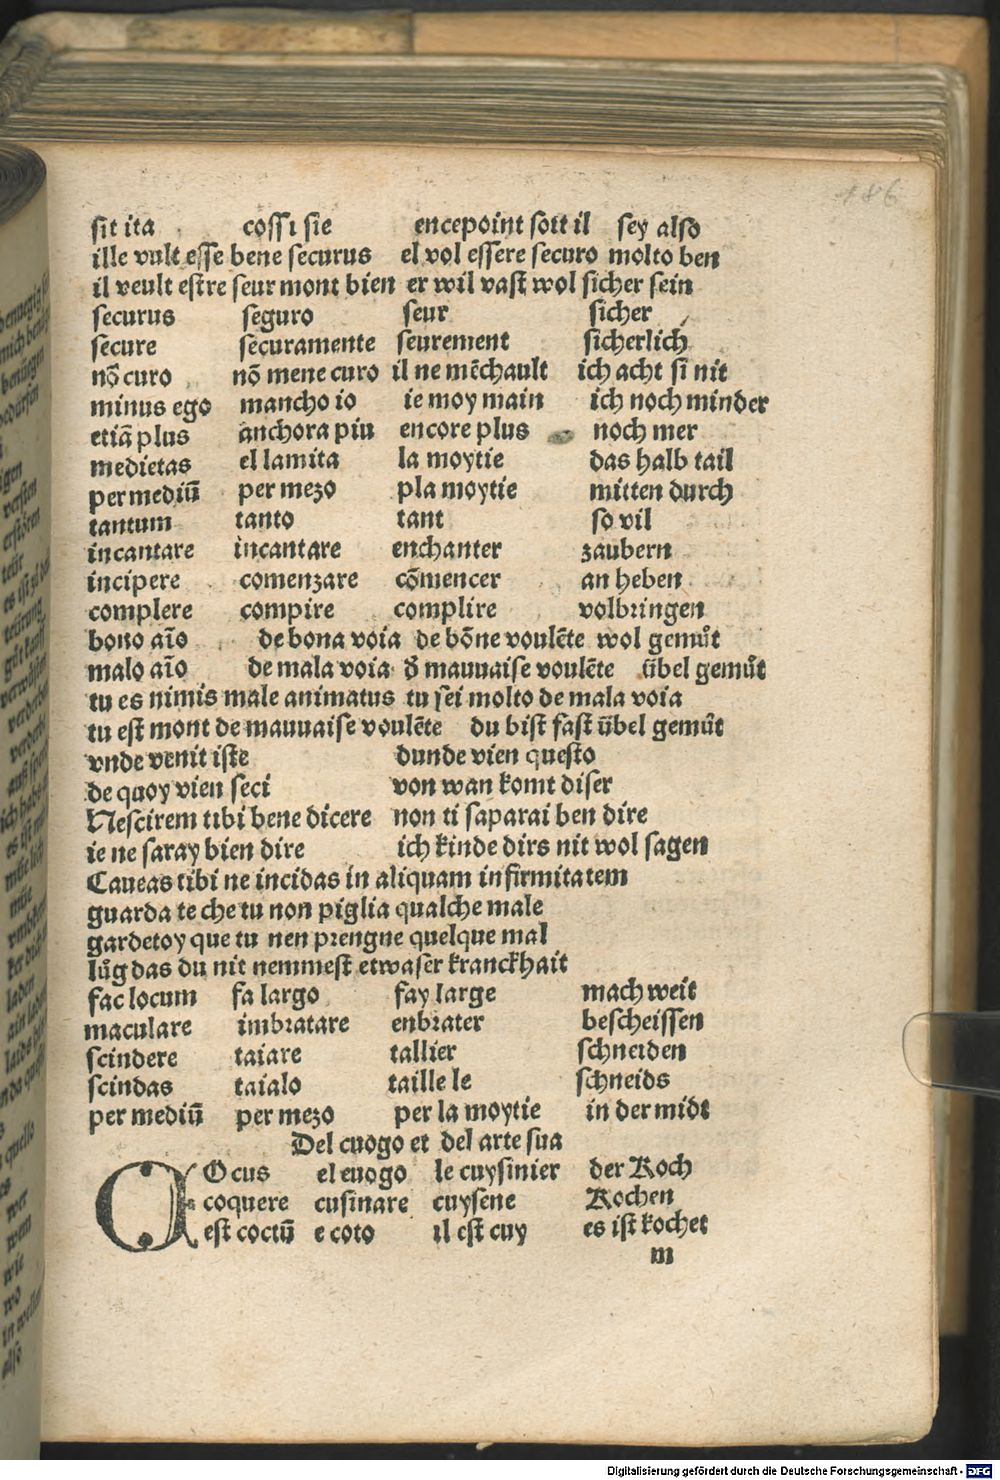 186
sit ita cossi sie encepoint sott il sey also
ille vult esse bene securus el vol essere securo molto ben
il veult estre seur mont bien er wil vast wol sicher sein
securus seguro seur sicher
secure securamente seurement sicherlich
nõ curo nõ mene curo il ne mẽchault ich acht si nit
minus ego mancho io ie moy main ich noch minder
etiã plus anchora piu encore plus noch mer
medietas el lamita la moytie das halb tail
per mediũ per mezo pla moytie mitten durch
tantum tanto tant so vil
incantare incantare enchanter zaubern
incipere comenzare cõmencer an heben
complere compire complire volbringen
bono aĩo de bona voia de bõne voulẽte wol gemuͤt
malo aĩo de mala voia đ mauuaise voulẽte übel gemuͤt
tu es nimis male animatus tu sei molto de mala voia
tu est mont de mauuaise voulẽte du bist fast übel gemuͤt
vnde venit iste dunde vien questo
de quoy vien seci von wan komt diser
Nescirem tibi bene dicere non ti saparai ben dire
ie ne saray bien dire ich kinde dirs nit wol sagen
Caueas tibi ne incidas in aliquam infirmitatem
guarda te che tu non piglia qualche male
gardetoy que tu nen prengne quelque mal
luͤg das du nit nemmest etwaser kranckhait
fac locum fa largo fay large mach weit
maculare imbratare enbrater bescheissen
scindere taiare tallier schneiden
scindas taialo taille le schneids
per mediũ per mezo per la moytie in der midt
Del cuogo et del arte sua
COcus el cuogo le cuysinier der Koch
coquere cusinare cuysene Kochen
est coctũ e coto il est cuy es ist kochet
m
Digitalisierung gefördert durch die Deutsche Forschungsgemeinschaft - DFG